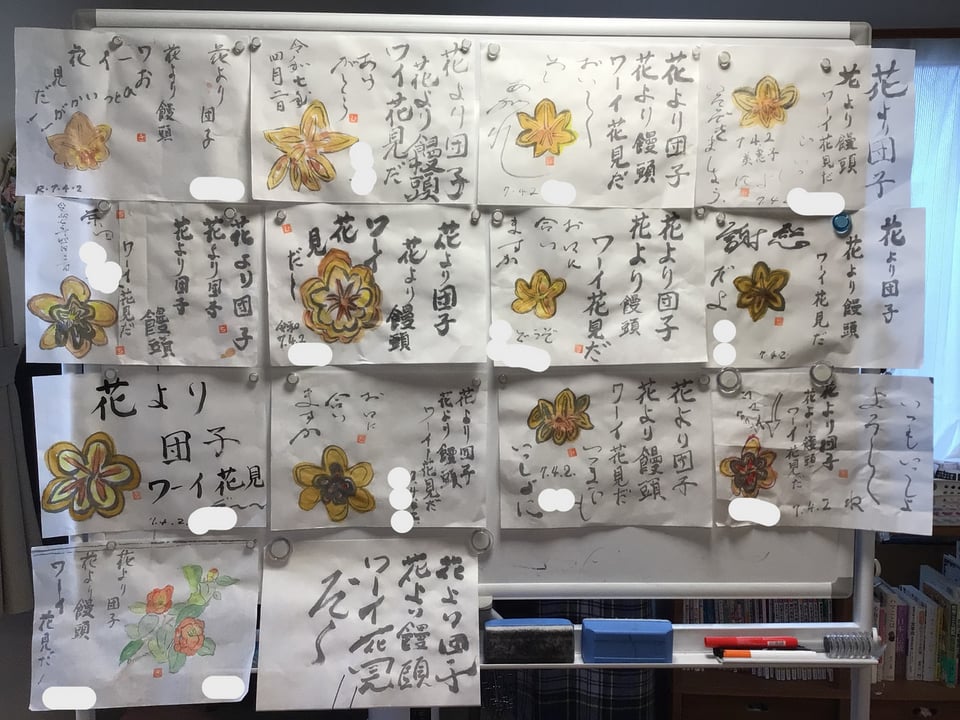 花より団子
花より饅頭
ワーイ花見だ
R.7.4.2
花より団子
花より饅頭
ワーイ花見だ
ありがとう
令和七年
四月二日
花より団子
花より饅頭
ワーイ花見だ
おーい
7.4.2
花より団子
花より饅頭
ワーイ花見だ
7.4.
花より団子
花より団子
花より団子
饅頭
ワーイ花見だ
花より団子
花より饅頭
ワーイ
花見だー
令和
7.4.2
花より団子
花より饅頭
ワーイ花見だ
おいに
合い
ますか
どうぞ
花より団子
花より饅頭
ワーイ花見だ
感謝
だよ
7.4.2
花より
団子
ワーイ花見
だ
7.4.2.
花より団子
花より饅頭
ワーイ花見だ
おいに
合い
ますか
花より団子
花より饅頭
ワーイ花見だ
いつまでも
いっしょに
7.4.2.
いつもいっしょ
よろしく
花より団子
花より饅頭
ワーイ花見だ
7.4.2
花より団子
花より饅頭
ワーイ
花見だ
花より団子
花より饅頭
ワーイ花見
だー